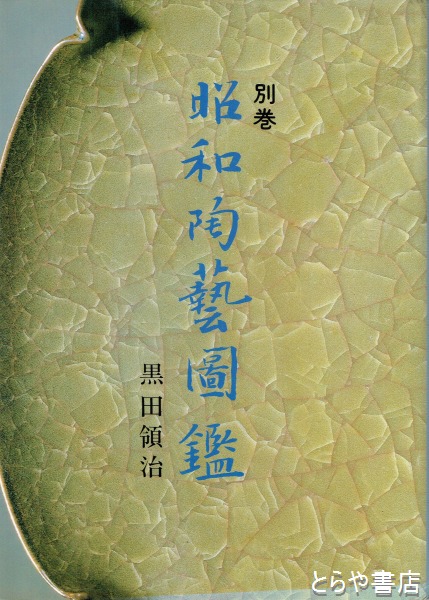 別巻
昭和陶藝圖鑑
黒田領治
とらや書店